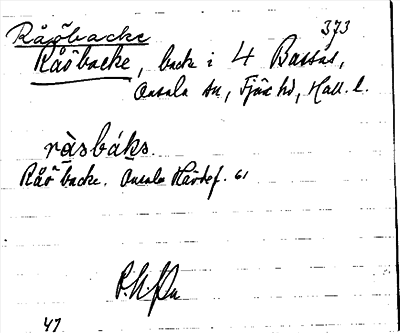 Råöbacke 373
Råöbacke, back i 4 Bassas,
Onsala sn, Fjäre hd, Hall. l.
ràsbáks.
Råö backe. Onsala Härdsf. 61
47